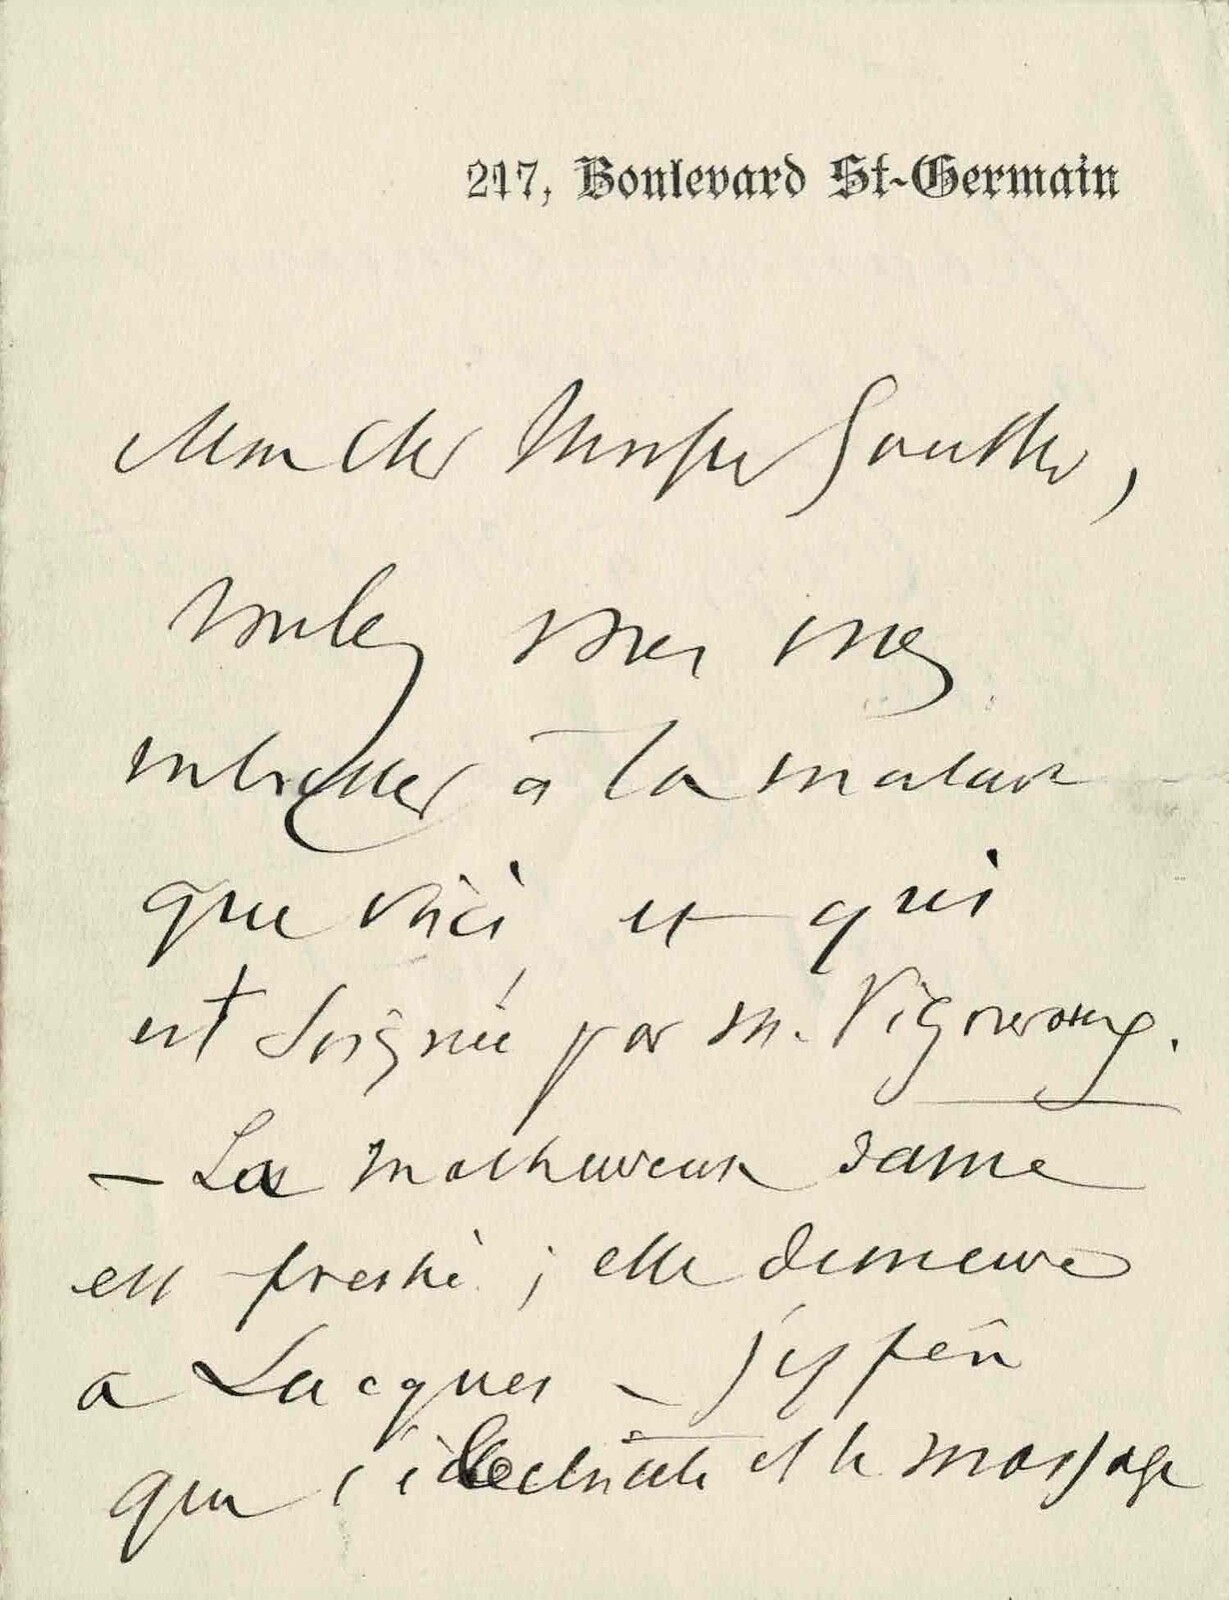 217, Boulevard St-Germain
Mon cher Monsieur
voulez vous vous
intéresser à la malade
que voici et qui
est soignée par M. Vigouroux.
— La malheureuse dame
est ; elle demeure
a Lucques — j'espère
que l'électricité et le massage